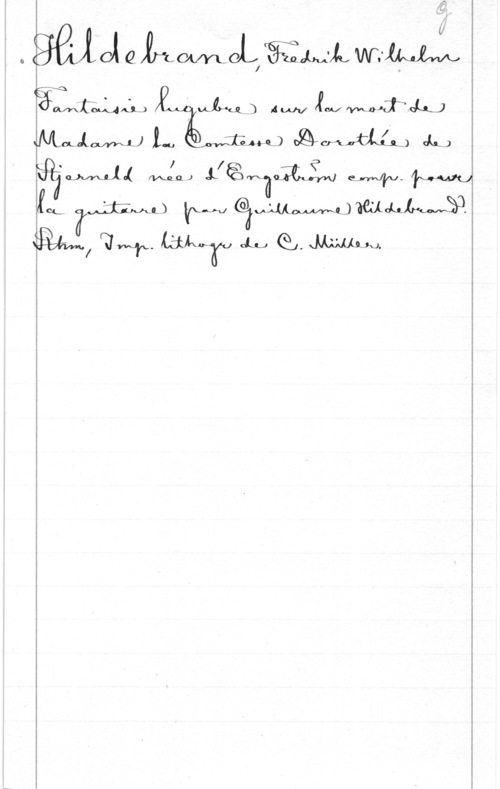 g
Hildebrand, Fredrik Wilhelm
Fantaisie lugubre sur la mort de
Madame la Comtesse Dorothée de
Stjerneld née d'Engeström comp. pour
la guitarre par Guillaume Hildebrand.
Sthm, Imp. lithogr de C. Müller.